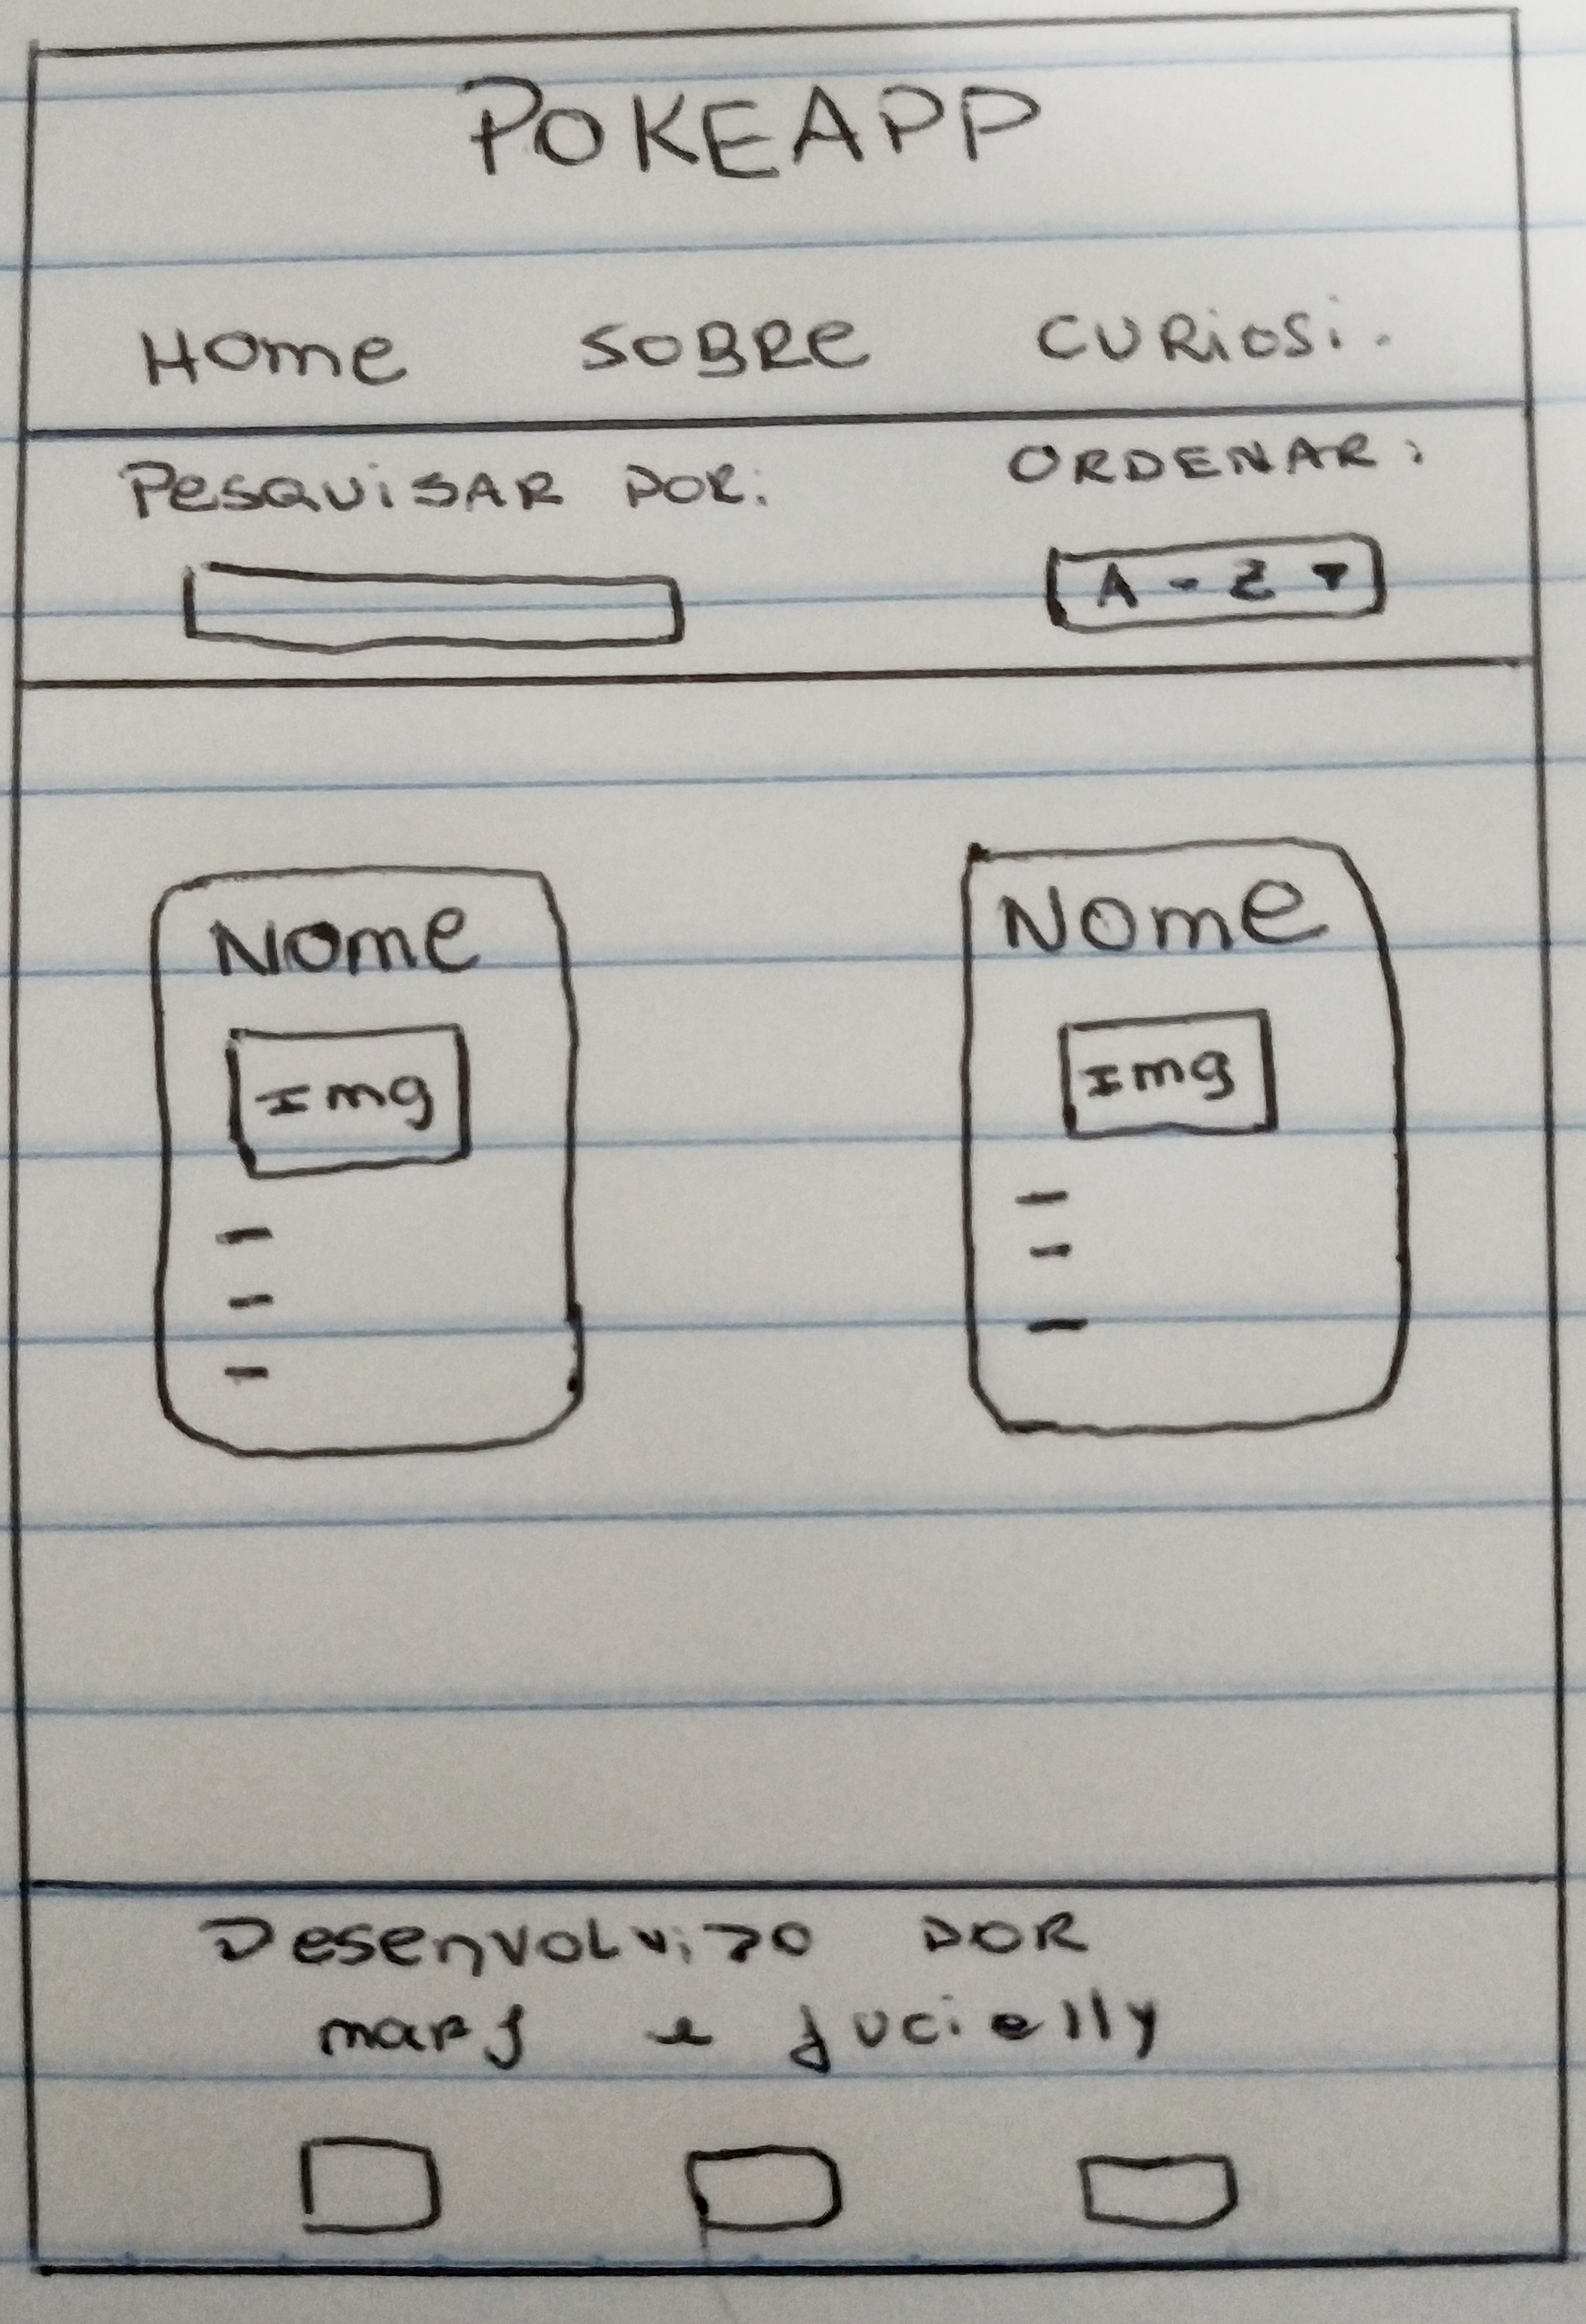 POKEAPP
Home SOBRE CURiOSi.
PesQUiSAR POR: ORDENAR:
A - Z
Nome Nome
Img Img
DesenvOLviDO POR
e Jucielly